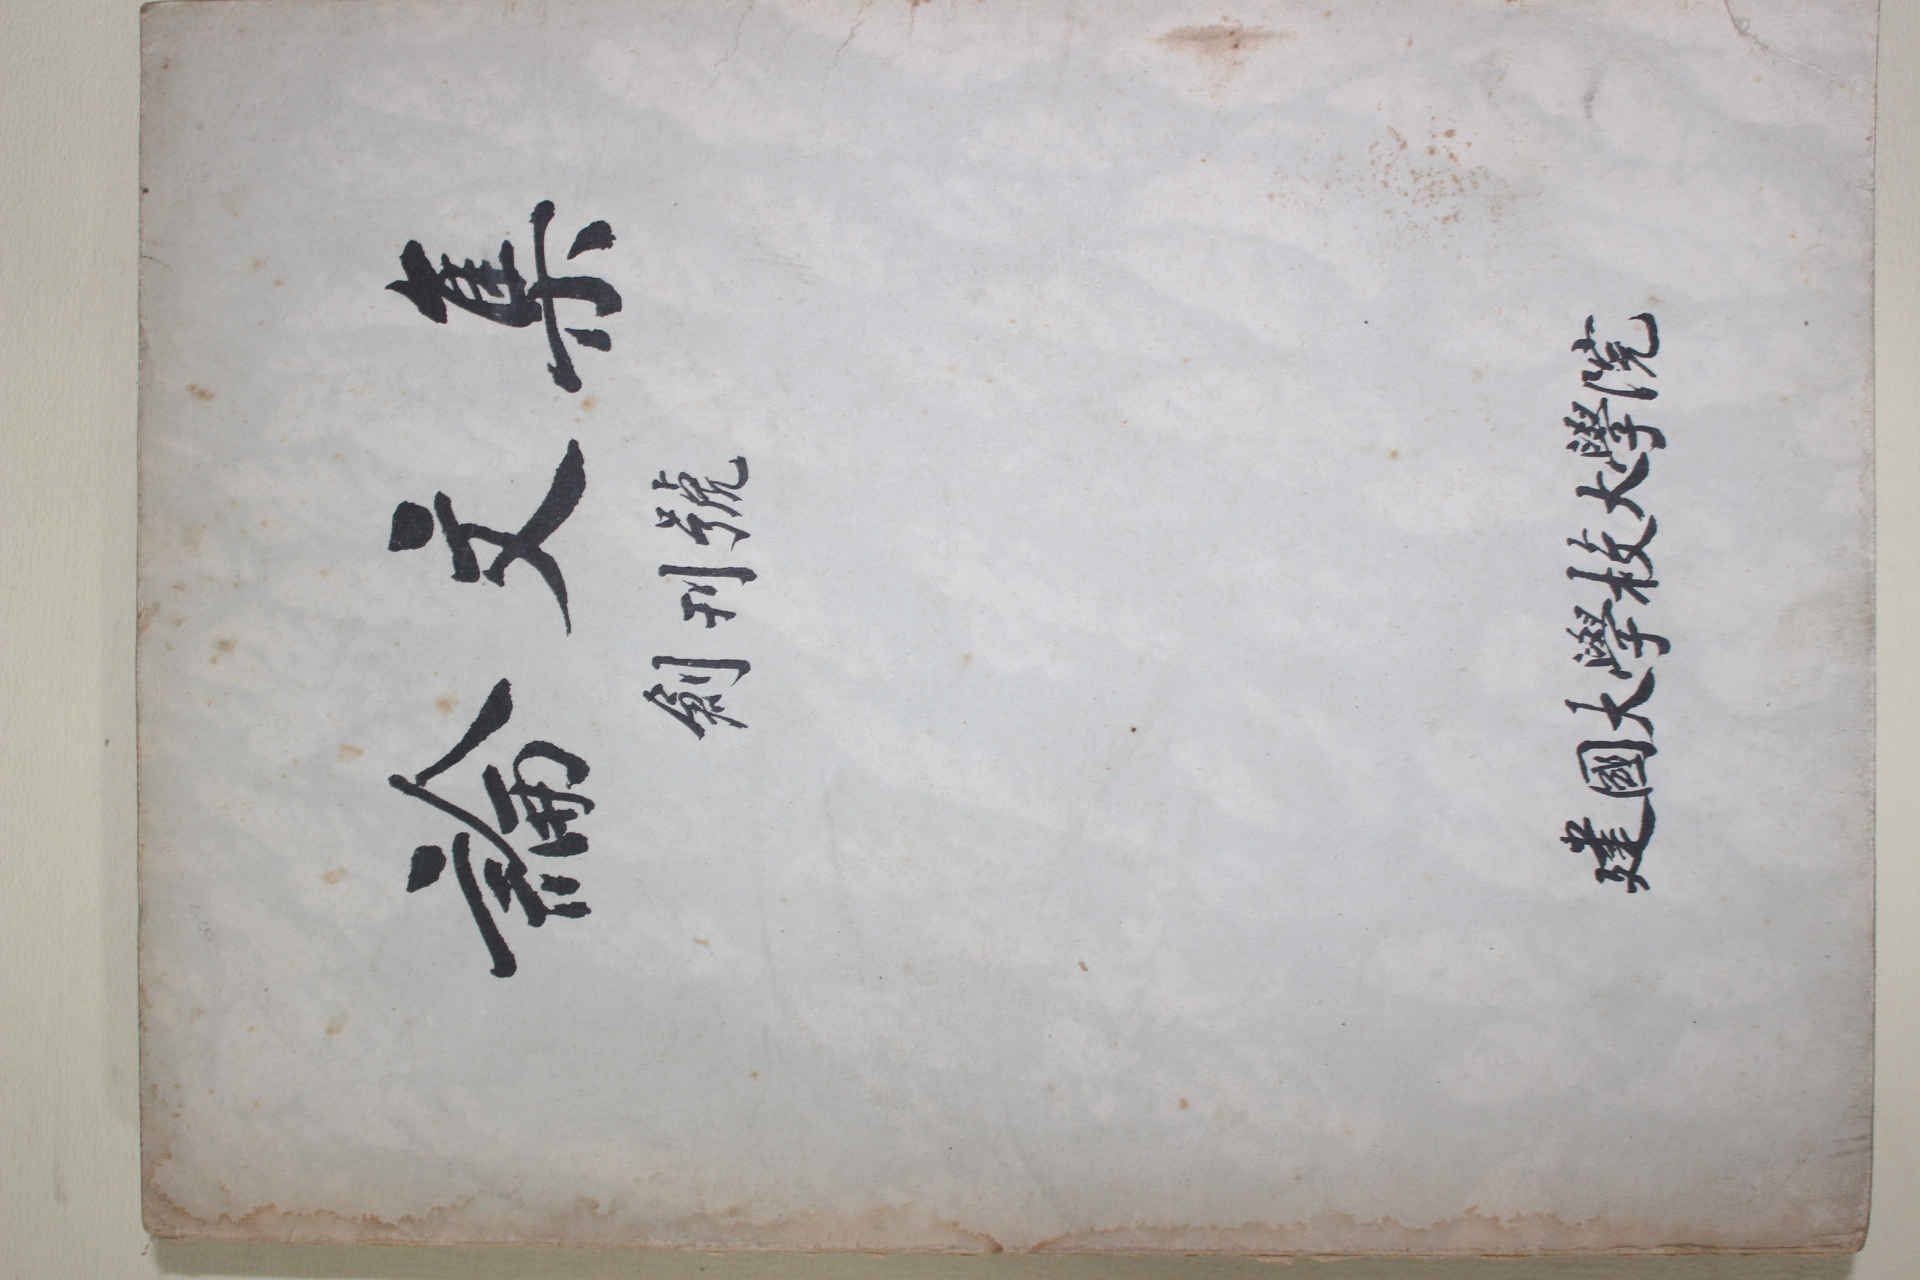 論文集
創刊號
建國大學校大學院